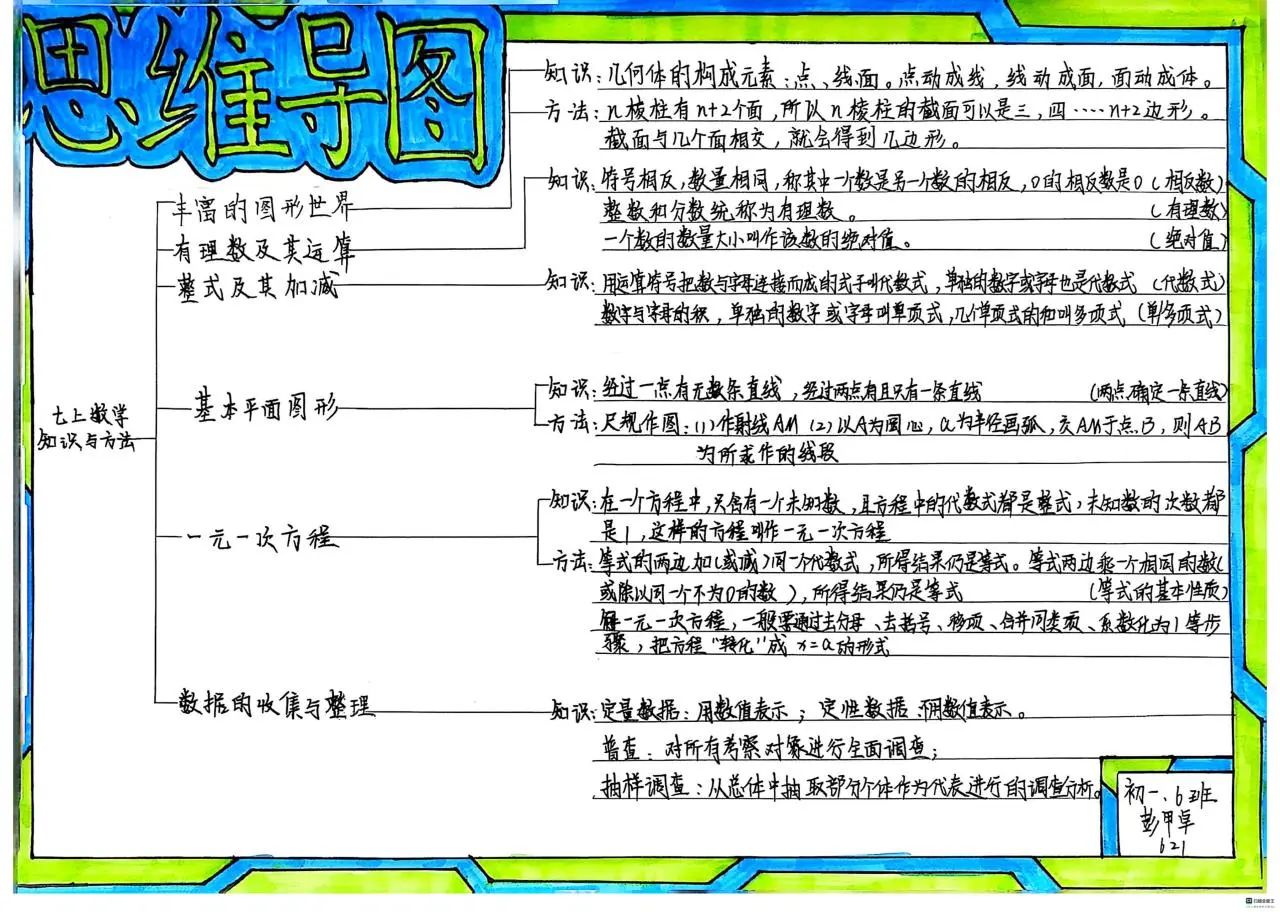 思维导图
知识：几何体的构成元素：点、线面。点动成线，线动成面，面动成体。
方法：n棱柱有n+2个面，所以n棱柱的截面可以是三，四……n+2边形。
截面与几个面相交，就会得到几边形。
丰富的图形世界
知识：符号相反，数量相同，称其中一个数是另一个数的相反，0的相反数是0（相反数）
整数和分数统称为有理数。（有理数）
一个数的数量大小叫作该数的绝对值。（绝对值）
有理数及其运算
整式及其加减
知识：用运算符号把数与字母连接而成的式子叫代数式，单独的数字或字母也是代数式（代数式）
数字与字母的积，单独的数字或字母叫单项式，几个单项式的和叫多项式（单/多项式）
七上数学
知识与方法
基本平面图形
知识：经过一点有无数条直线，经过两点有且只有一条直线（两点确定一条直线）
方法：尺规作图：(1)作射线AM (2)以A为圆心，a为半径画弧，交AM于点B，则AB
为所求作的线段
一元一次方程
知识：在一个方程中，只含有一个未知数，且方程中的代数式都是整式，未知数的次数都
是1，这样的方程叫作一元一次方程
方法：等式的两边加(或减)同一个代数式，所得结果仍是等式。等式两边乘一个相同的数(
或除以同一个不为0的数），所得结果仍是等式（等式的基本性质）
解一元一次方程，一般要通过去分母、去括号、移项、合并同类项、系数化为1等步
骤，把方程“转化”成x=a的形式
数据的收集与整理
知识：定量数据：用数值表示；定性数据：不用数值表示。
普查：对所有考察对象进行全面调查；
抽样调查：从总体中抽取部分个体作为代表进行的调查分析。
初一、6班
彭甲卓
621